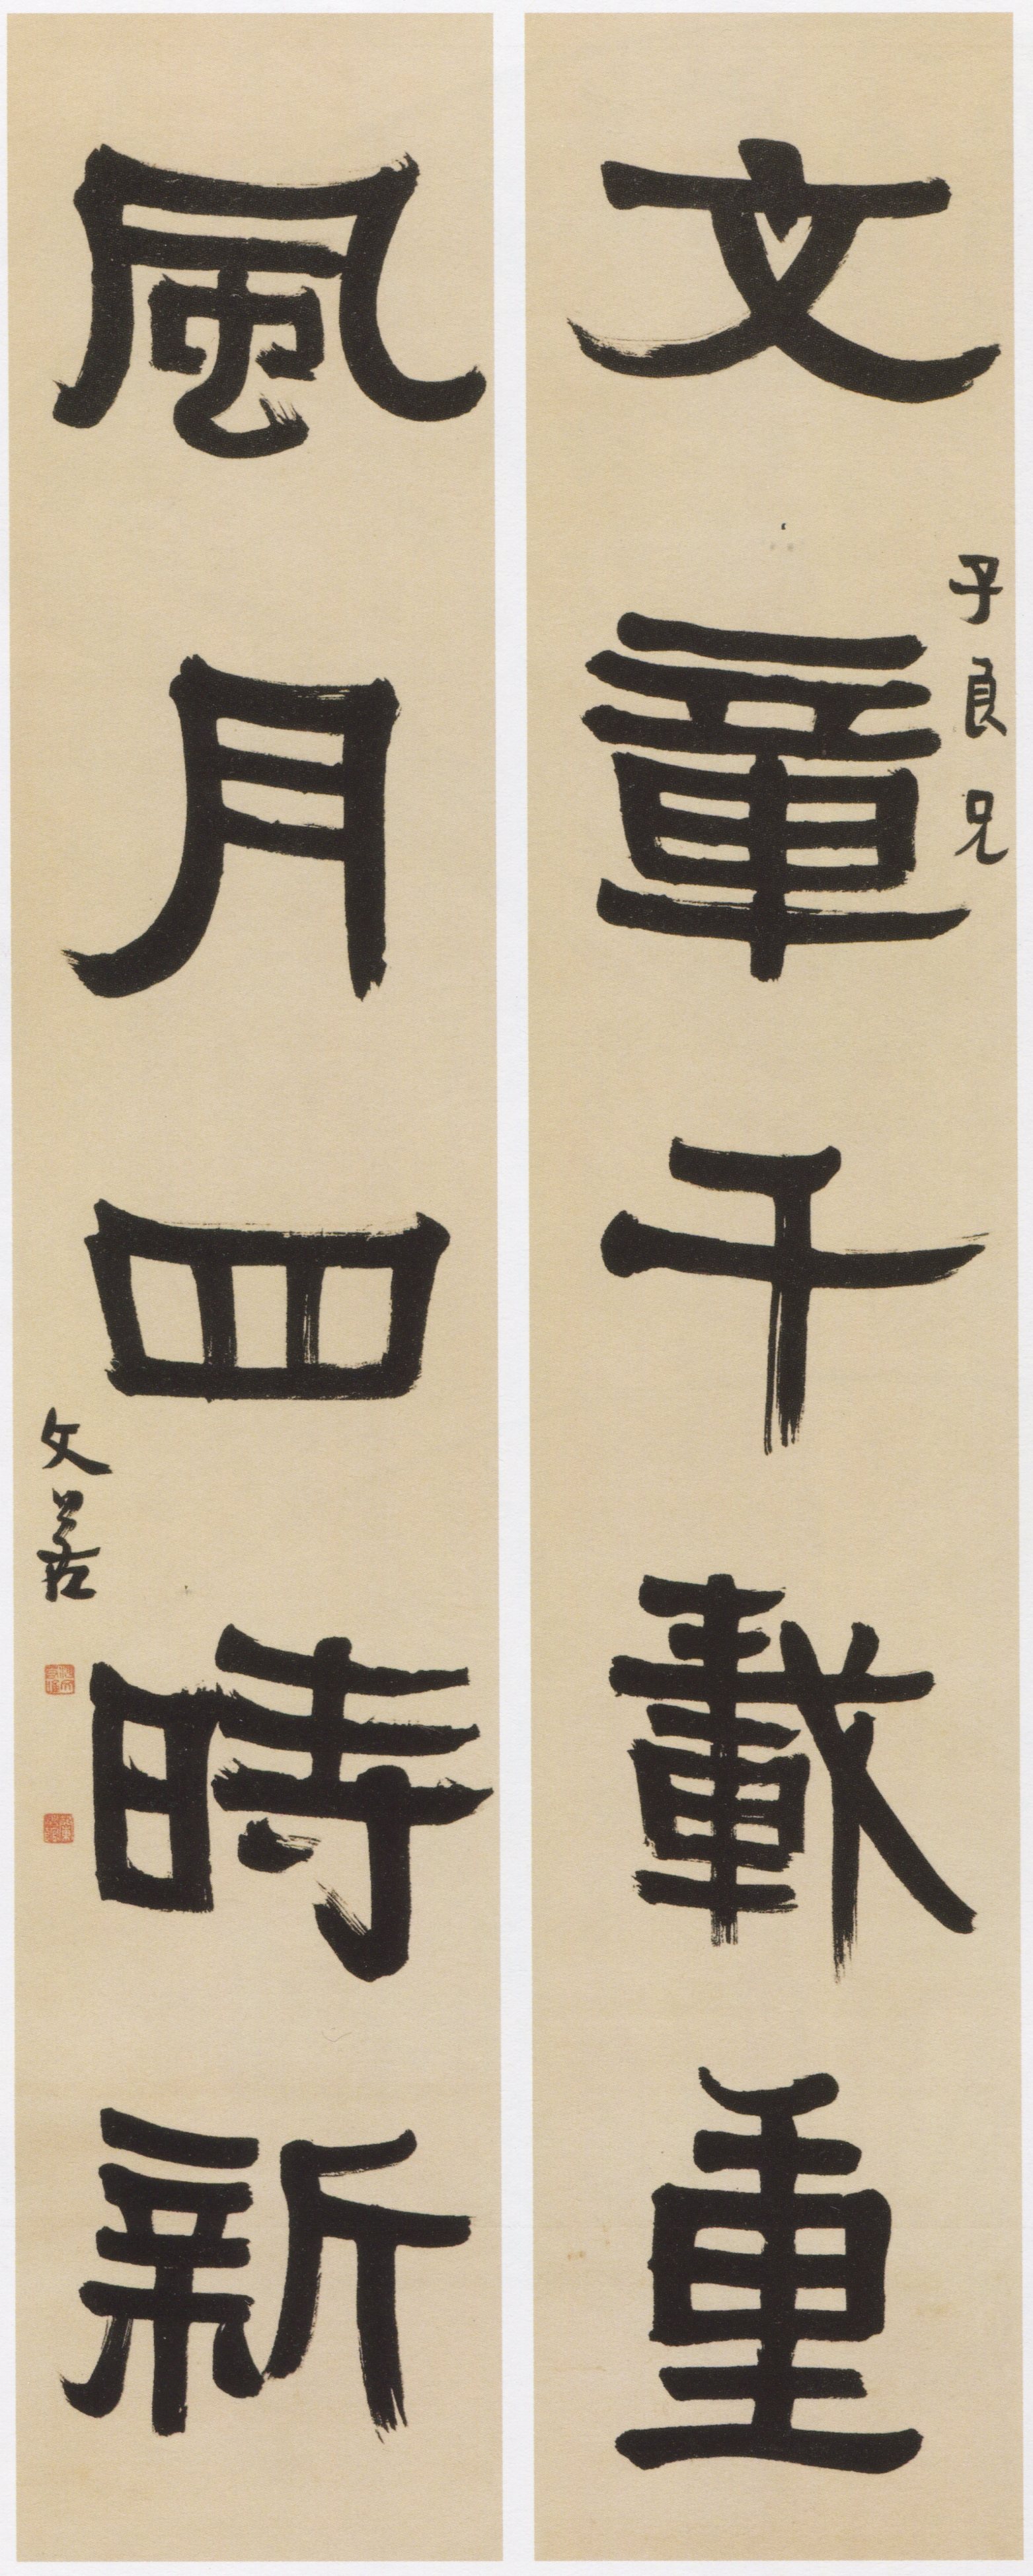 文章千載重
子良兄
風月四時新
文善